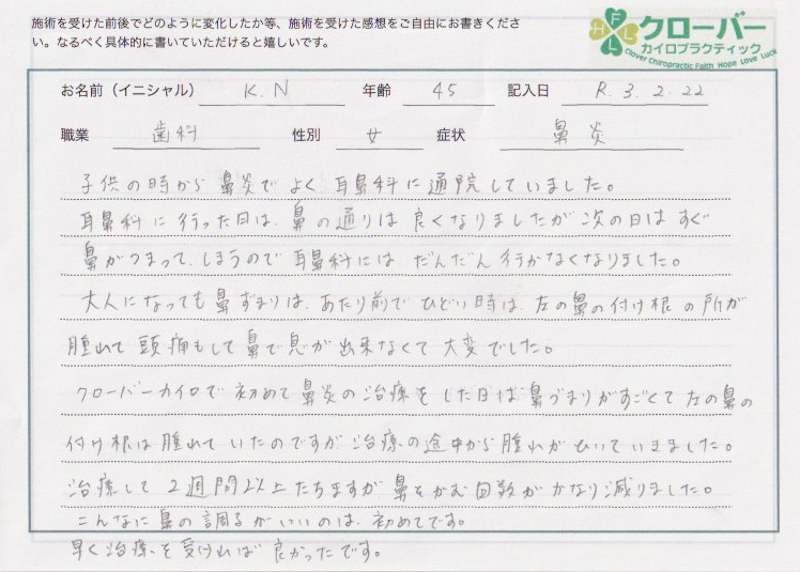 施術を受けた前後でどのように変化したか等、施術を受けた感想をご自由にお書きくださ
い。なるべく具体的に書いていただけると嬉しいです。
HFLL
クローバー
カイロプラクティック
Clover Chiropractic Faith Hope Love Luck
お名前（イニシャル） K.N 年齢 45 記入日 R.3.2.22
職業 歯科 性別 女 症状 鼻炎
子供の時から鼻炎でよく耳鼻科に通院していました。
耳鼻科に行った日は、鼻の通りは良くなりましたが次の日はすぐ
鼻がつまって、しまうので耳鼻科にはだんだん行かなくなりました。
大人になっても鼻ずまりは、あたり前でひどい時は、左の鼻の付け根の所が
腫れて頭痛もして鼻で息が出来なくて大変でした。
クローバーカイロで初めて鼻炎の治療をした日は鼻づまりがすごくて左の鼻の
付け根は腫れていたのですが治療の途中から腫れがひいていきました。
治療して2週間以上たちますが鼻をかむ回数がかなり減りました。
こんなに鼻の調子がいいのは、初めてです。
早く治療を受ければ良かったです。